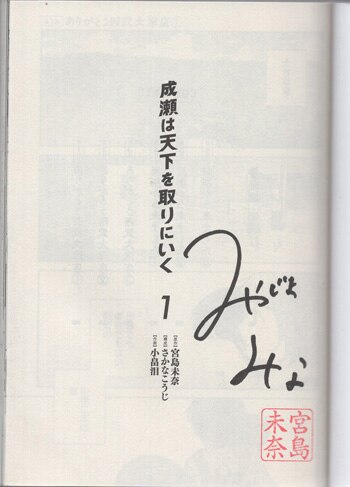 成瀬は天下を取りにいく
1
【原作】宮島未奈
【構成】さかなこうじ
【作画】小畠泪
みやじま
みな
宮島
未奈